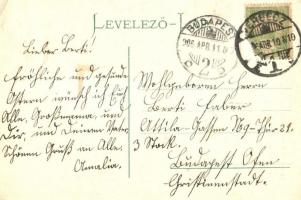 LEVELEZŐ-L
BUDAPEST
906 APR 11
Lieber Berti.
Fröhliche und gesunde
Ostern wünsch ich Euch
Alle, Großmama, und
Dir, und Deinen Vater.
Schönen Gruß an Alle.
Amalia.
Wohlgeboren Herrn
Berti Faber
Attila-Gassen No 9-Thür 21.
3 Stock.
Budapest Ofen
Christinenstadt.